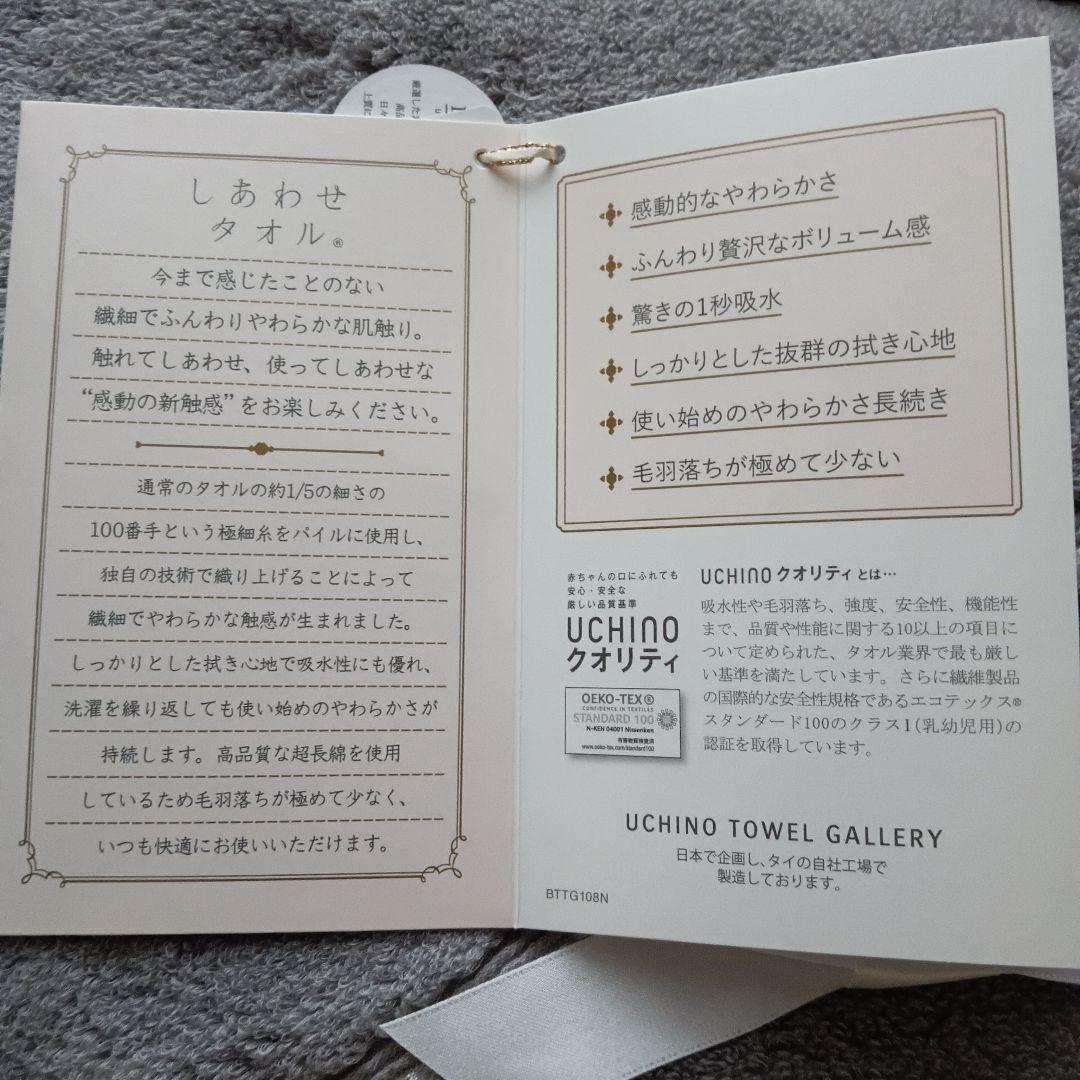 しあわせ
タオル®
今まで感じたことのない
繊細でふんわりやわらかな肌触り。
触れてしあわせ、使ってしあわせな
“感動の新触感”をお楽しみください。
通常のタオルの約1/5の細さの
100番手という極細糸をパイルに使用し、
独自の技術で織り上げることによって
繊細でやわらかな触感が生まれました。
しっかりとした拭き心地で吸水性にも優れ、
洗濯を繰り返しても使い始めのやわらかさが
持続します。高品質な超長綿を使用
しているため毛羽落ちが極めて少なく、
いつも快適にお使いいただけます。
感動的なやわらかさ
ふんわり贅沢なボリューム感
驚きの1秒吸水
しっかりとした抜群の拭き心地
使い始めのやわらかさ長続き
毛羽落ちが極めて少ない
赤ちゃんの口にふれても
安心・安全な
厳しい品質基準
UCHINO
クオリティ
OEKO-TEX®
CONFIDENCE IN TEXTILES
STANDARD 100
N-KEN 04001 Nissenken
有害物質検査済
www.oeko-tex.com/standard100
UCHINO クオリティ とは…
吸水性や毛羽落ち、強度、安全性、機能性
まで、品質や性能に関する10以上の項目に
ついて定められた、タオル業界で最も厳し
い基準を満たしています。さらに繊維製品
の国際的な安全性規格であるエコテックス®
スタンダード100のクラス1(乳幼児用)の
認証を取得しています。
UCHINO TOWEL GALLERY
日本で企画し、タイの自社工場で
製造しております。
BTTG108N